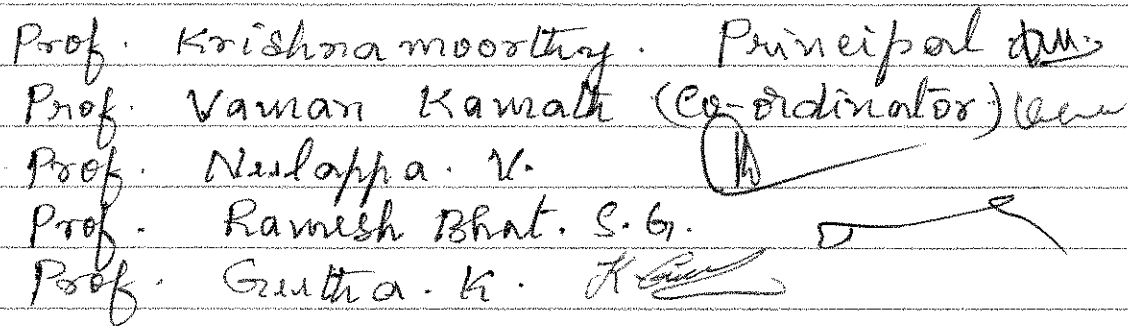 Prof. Krishnamoorthy. Principal
Prof. Vaman Kamath (Co-ordinator)
Prof. Neelappa. V.
Prof. Ramesh Bhat. S. G.
Prof. Geetha. K.